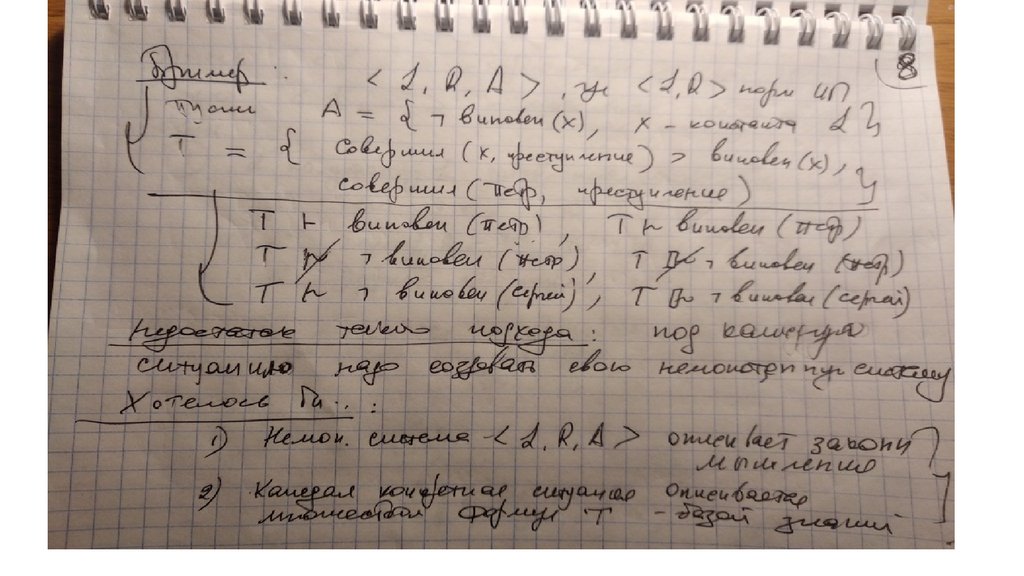 8
Пример : < L, R, A > , где < L, R > норм ИП
Пусть A = { ¬ виновен (x), x - константа L }
T = { совершил (x, преступление) ⊃ виновен (x),
совершил (петр, преступление) }
T ⊢ виновен (петр), T |~ виновен (петр)
T ⊬ ¬ виновен (петр), T |≁ ¬ виновен (петр)
T ⊬ ¬ виновен (сергей), T |~ ¬ виновен (сергей)
Недостаток такого подхода : под каждую
ситуацию надо создавать свою немонотонную систему
Хотелось бы .. :
1) Немон. система < L, R, A > описывает законы
мышления
2) Каждая конкретная ситуация описывается
множеством формул T - базой знаний